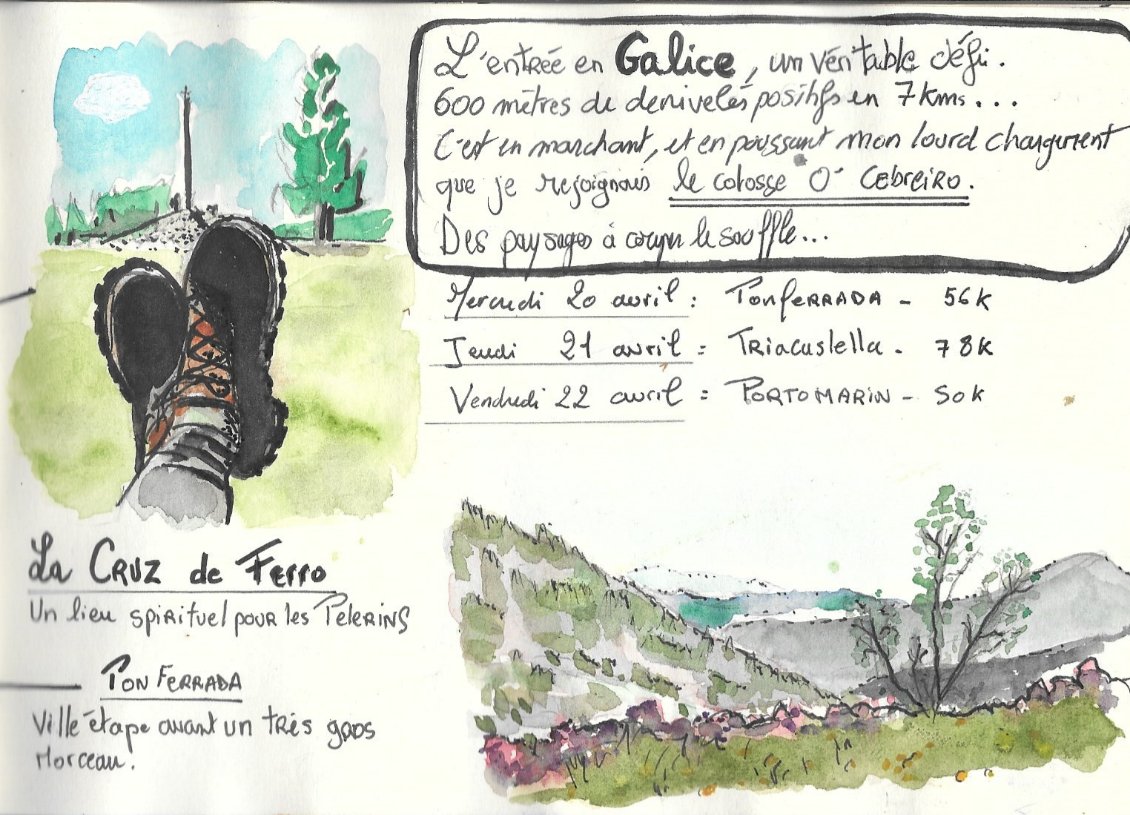 L'entrée en Galice, un véritable défi.
600 mètres de denivelés positifs en 7 kms...
C'est en marchant, et en poussant mon lourd chargement
que je rejoignais le colosse O' Cebreiro.
Des paysages à couper le souffle...
Mercredi 20 avril : PONFERRADA - 56K
Jeudi 21 avril : TRiacastella - 78K
Vendredi 22 avril : PORTOMARIN - 50K
La CRUZ de Ferro
Un lieu spirituel pour les Pelerins
PONFERRADA
Ville étape avant un très gros
Morceau.